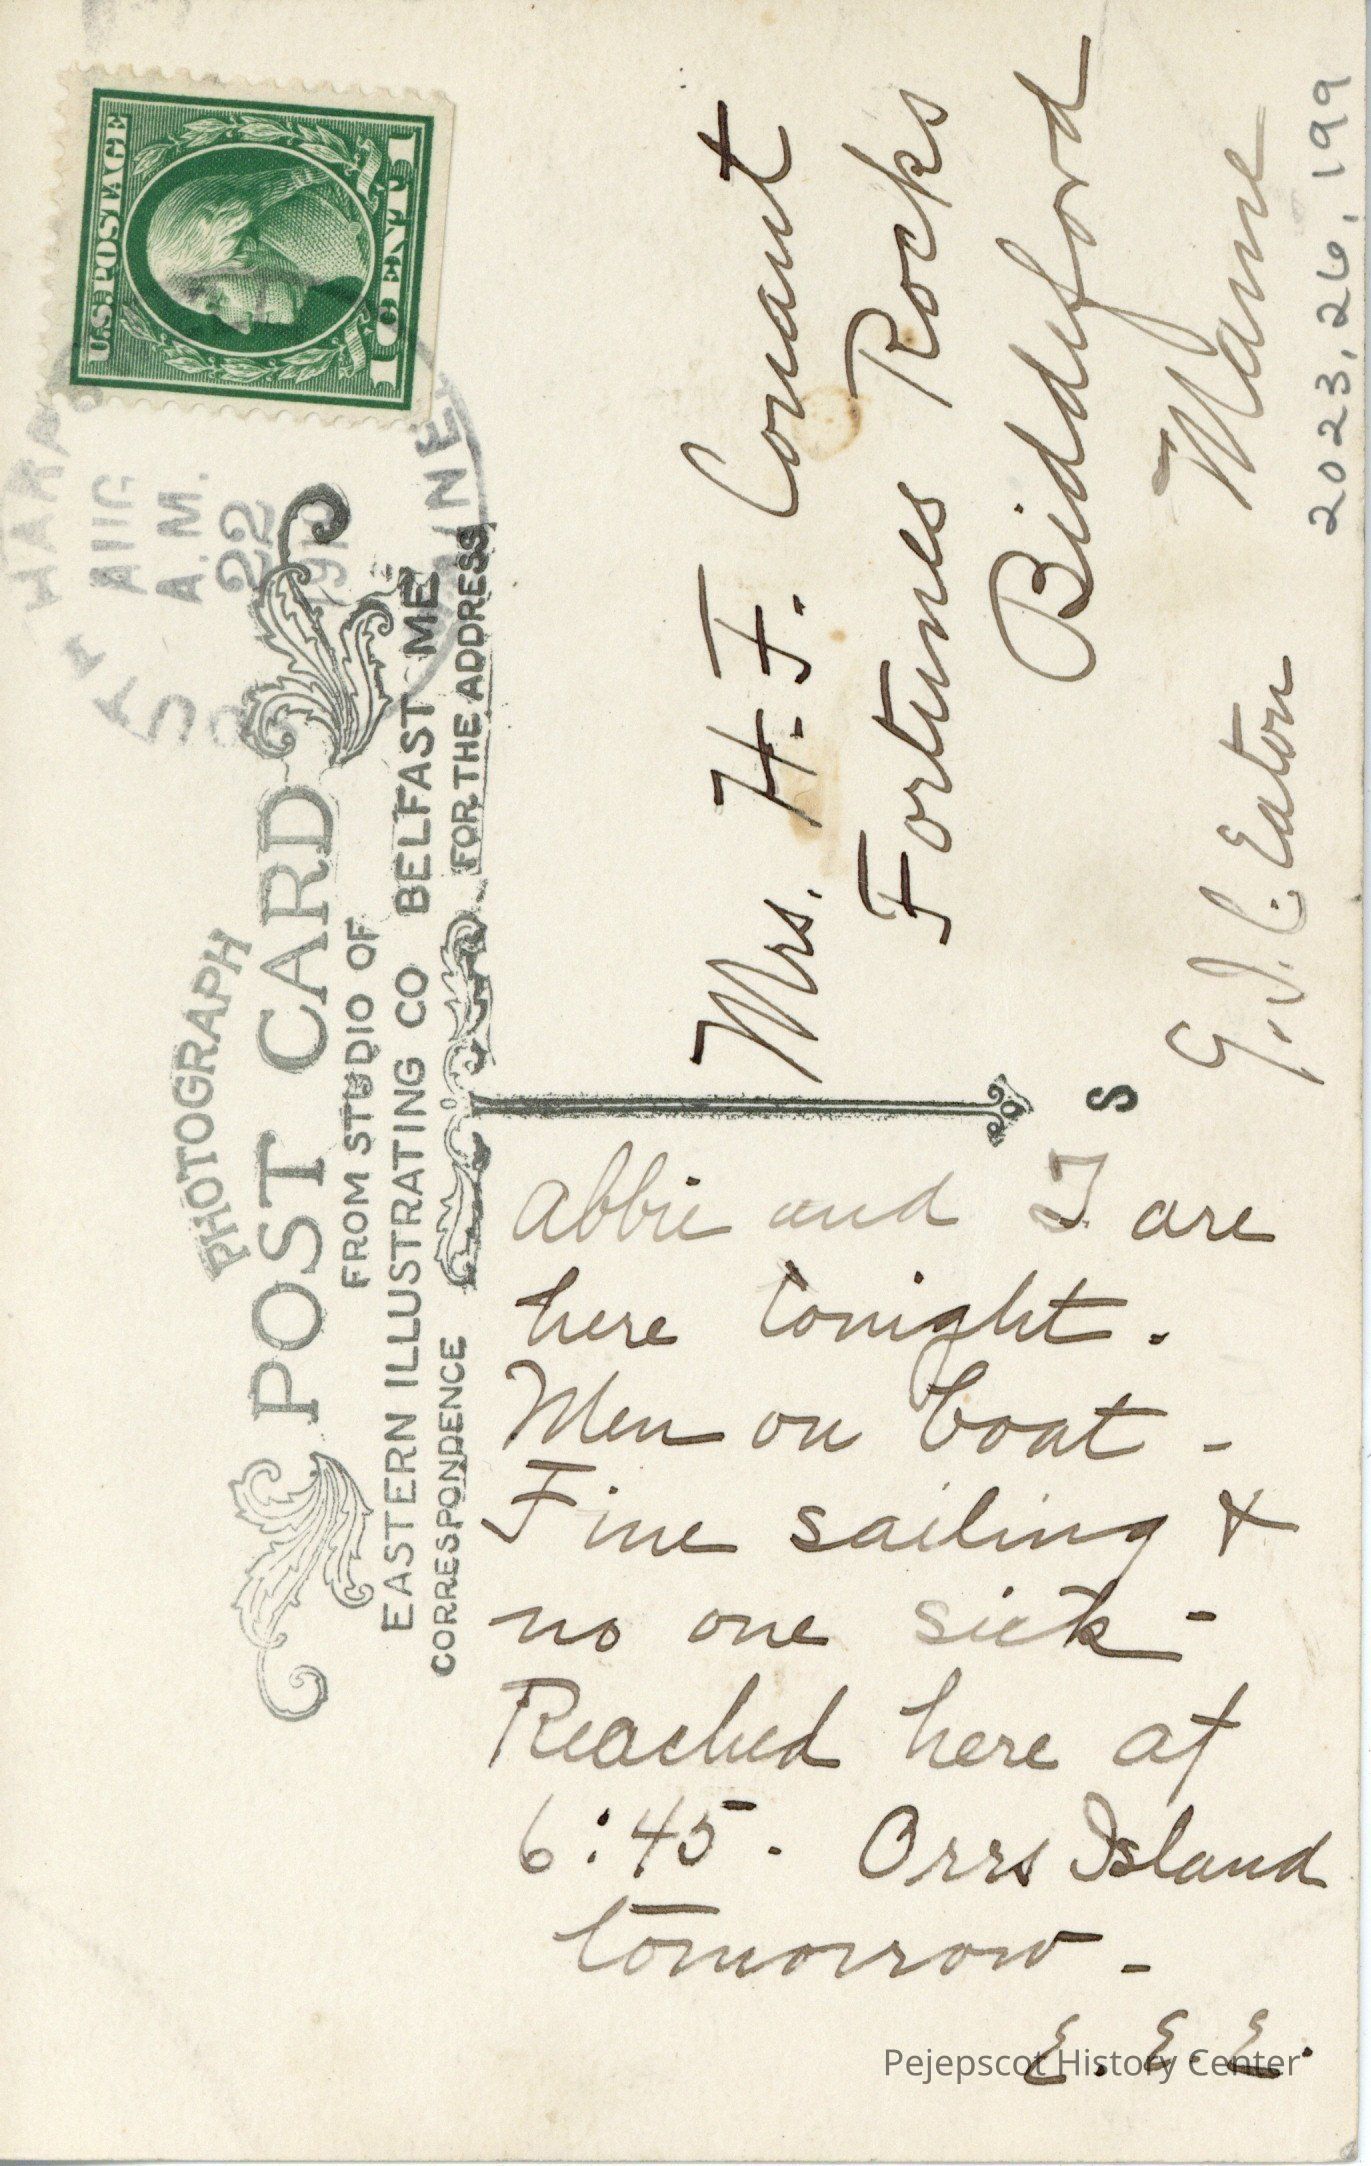 PHOTOGRAPH
POST CARD
FROM STUDIO OF
EASTERN ILLUSTRATING CO BELFAST ME
CORRESPONDENCE
FOR THE ADDRESS
U.S. POSTAGE
1 CENT 1
AUG
22
A.M.
MAINE
Abbie and I are
here tonight.
Men on boat -
Fine sailing &
no one sick -
Reached here at
6:45. Orrs Island
tomorrow -
E. E. E.
Mrs. H. F. Conant
Fortunes Rocks
Biddeford
Maine
S
Eaton
2023.26.199
Pejepscot History Center